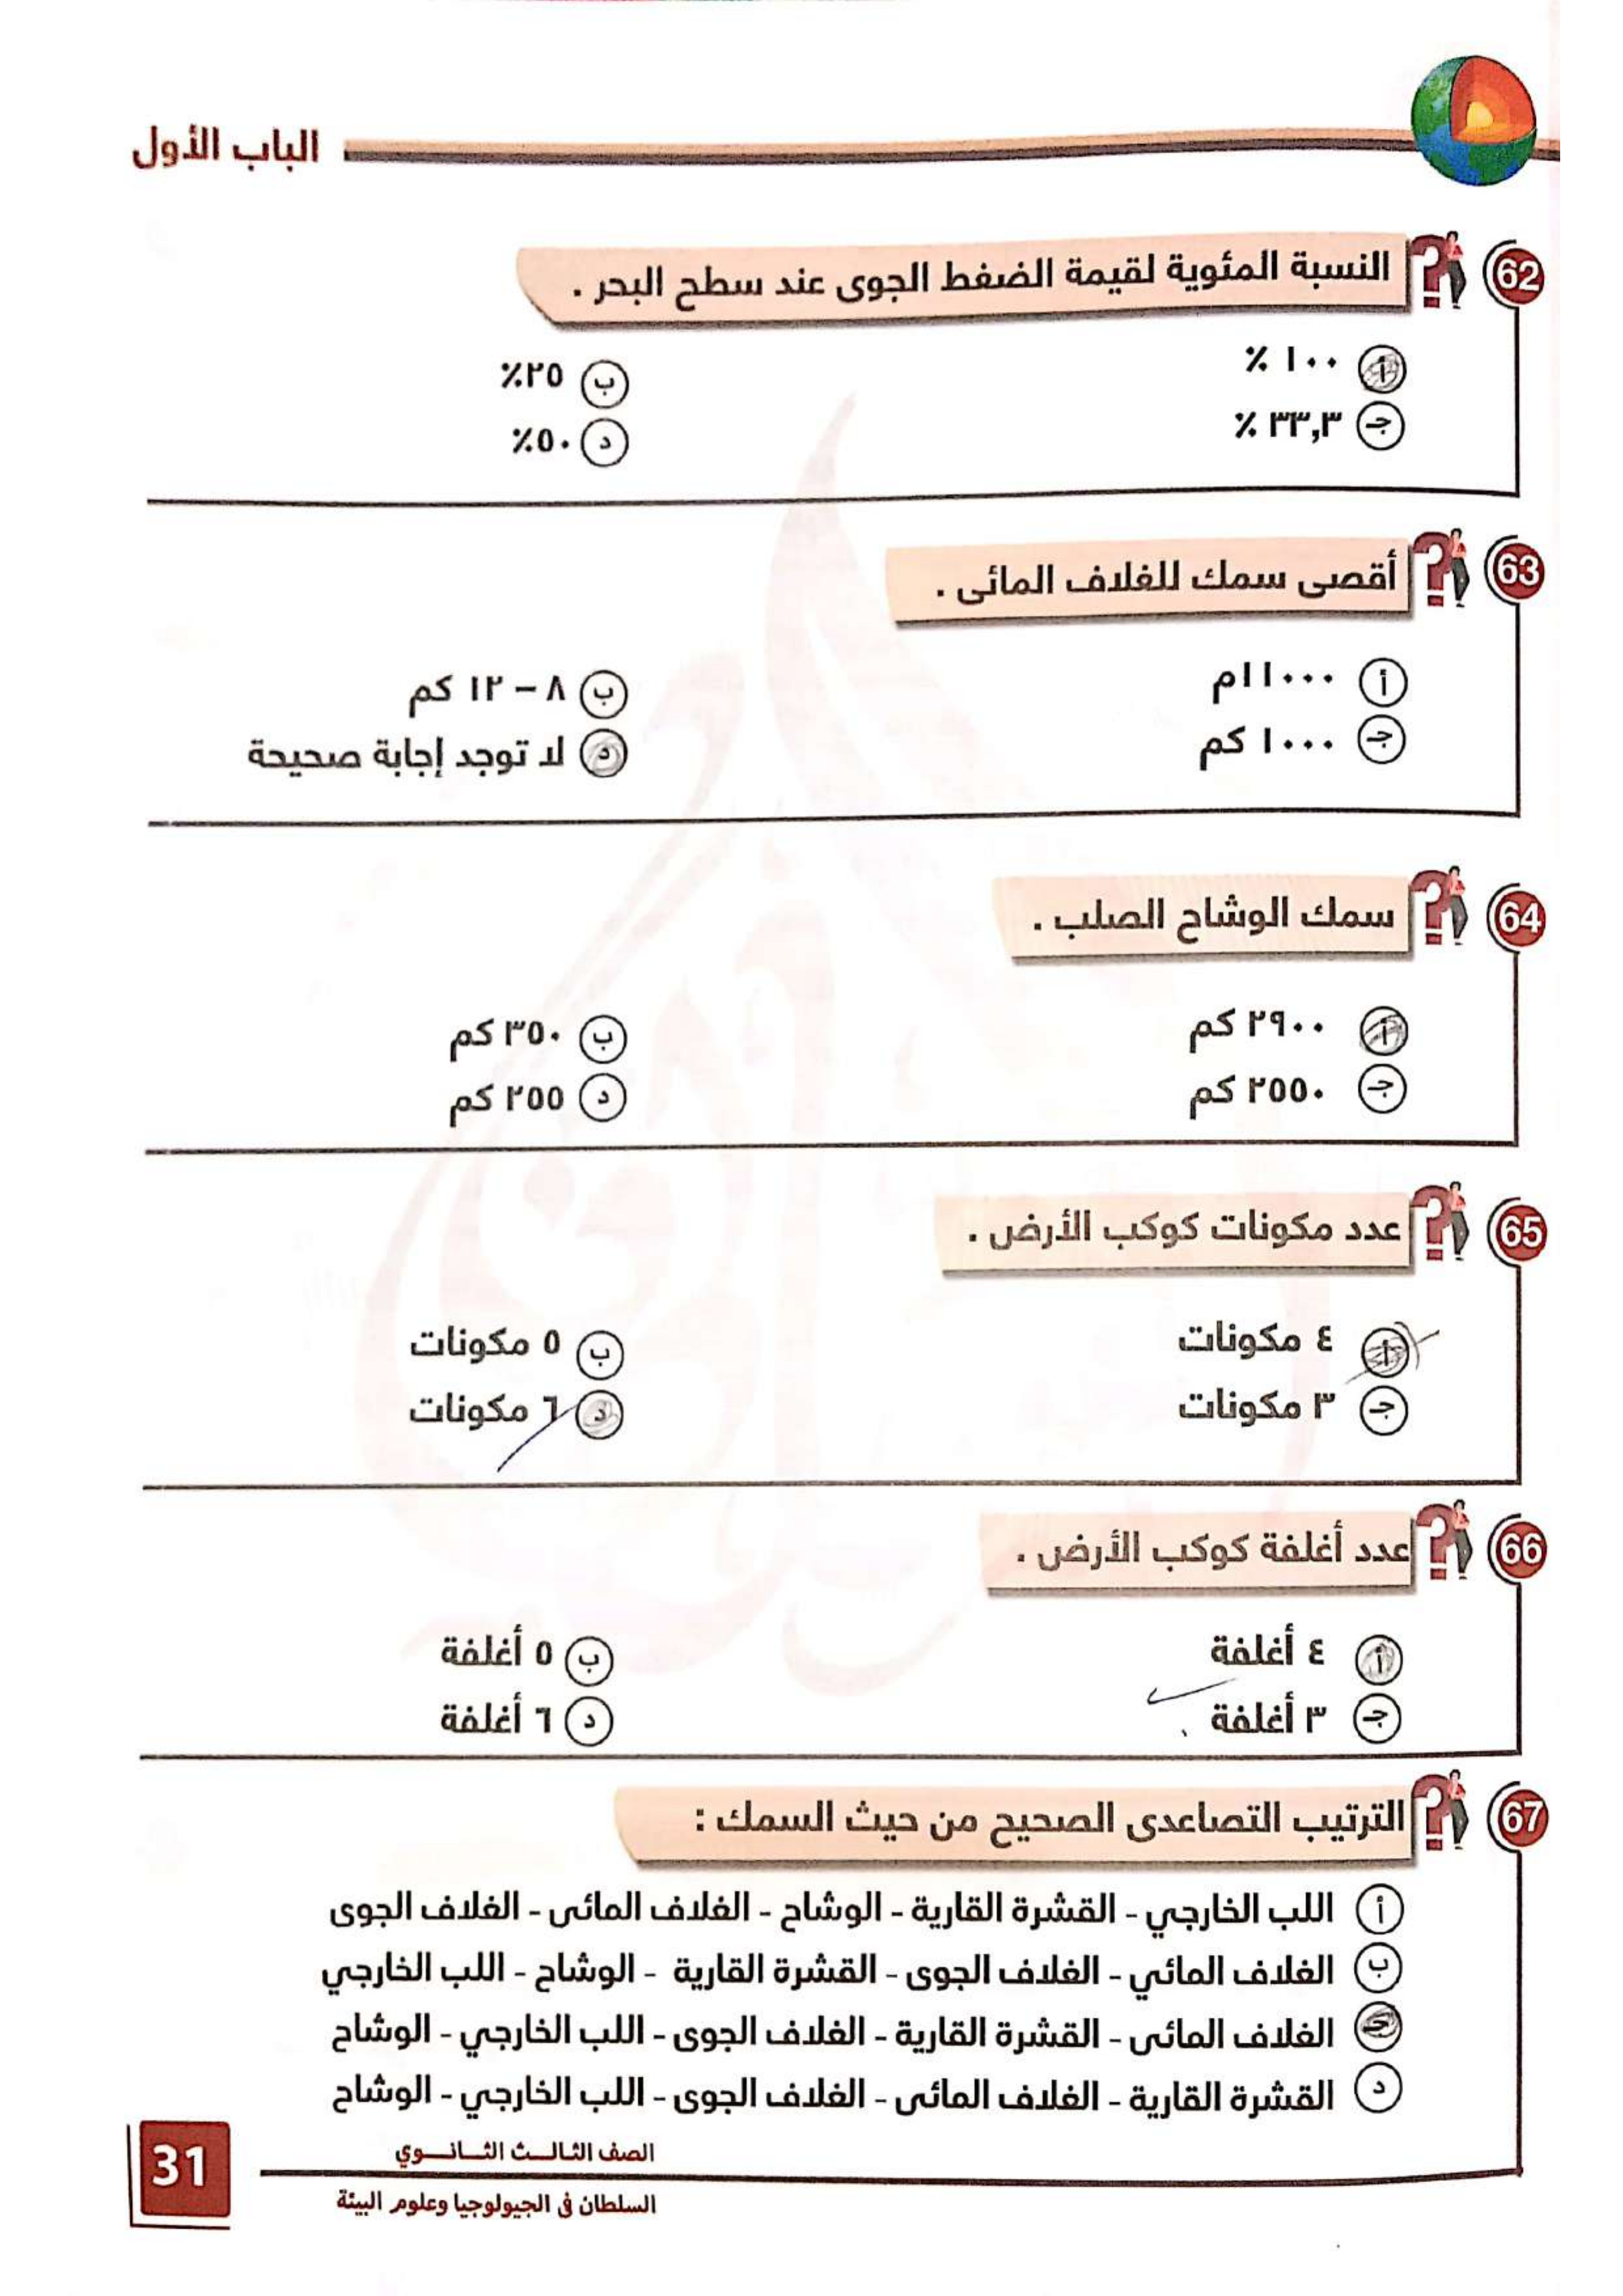 الباب الأول
62 النسبة المئوية لقيمة الضغط الجوى عند سطح البحر .
أ ١٠٠ ٪
ب ٢٥٪
جـ ٣٣,٣ ٪
د ٥٠٪
63 أقصى سمك للغلاف المائى .
أ ١١٠٠٠م
ب ٨ – ١٢ كم
جـ ١٠٠٠ كم
د لا توجد إجابة صحيحة
64 سمك الوشاح الصلب .
أ ٢٩٠٠ كم
ب ٣٥٠ كم
جـ ٢٥٥٠ كم
د ٢٥٥ كم
65 عدد مكونات كوكب الأرض .
أ ٤ مكونات
ب ٥ مكونات
جـ ٣ مكونات
د ٦ مكونات
66 عدد أغلفة كوكب الأرض .
أ ٤ أغلفة
ب ٥ أغلفة
جـ ٣ أغلفة
د ٦ أغلفة
67 الترتيب التصاعدى الصحيح من حيث السمك :
أ اللب الخارجي - القشرة القارية - الوشاح - الغلاف المائى - الغلاف الجوى
ب الغلاف المائي - الغلاف الجوى - القشرة القارية - الوشاح - اللب الخارجي
جـ الغلاف المائى - القشرة القارية - الغلاف الجوى - اللب الخارجي - الوشاح
د القشرة القارية - الغلاف المائى - الغلاف الجوى - اللب الخارجي - الوشاح
الصف الثالث الثانوي
31
السلطان فى الجيولوجيا وعلوم البيئة